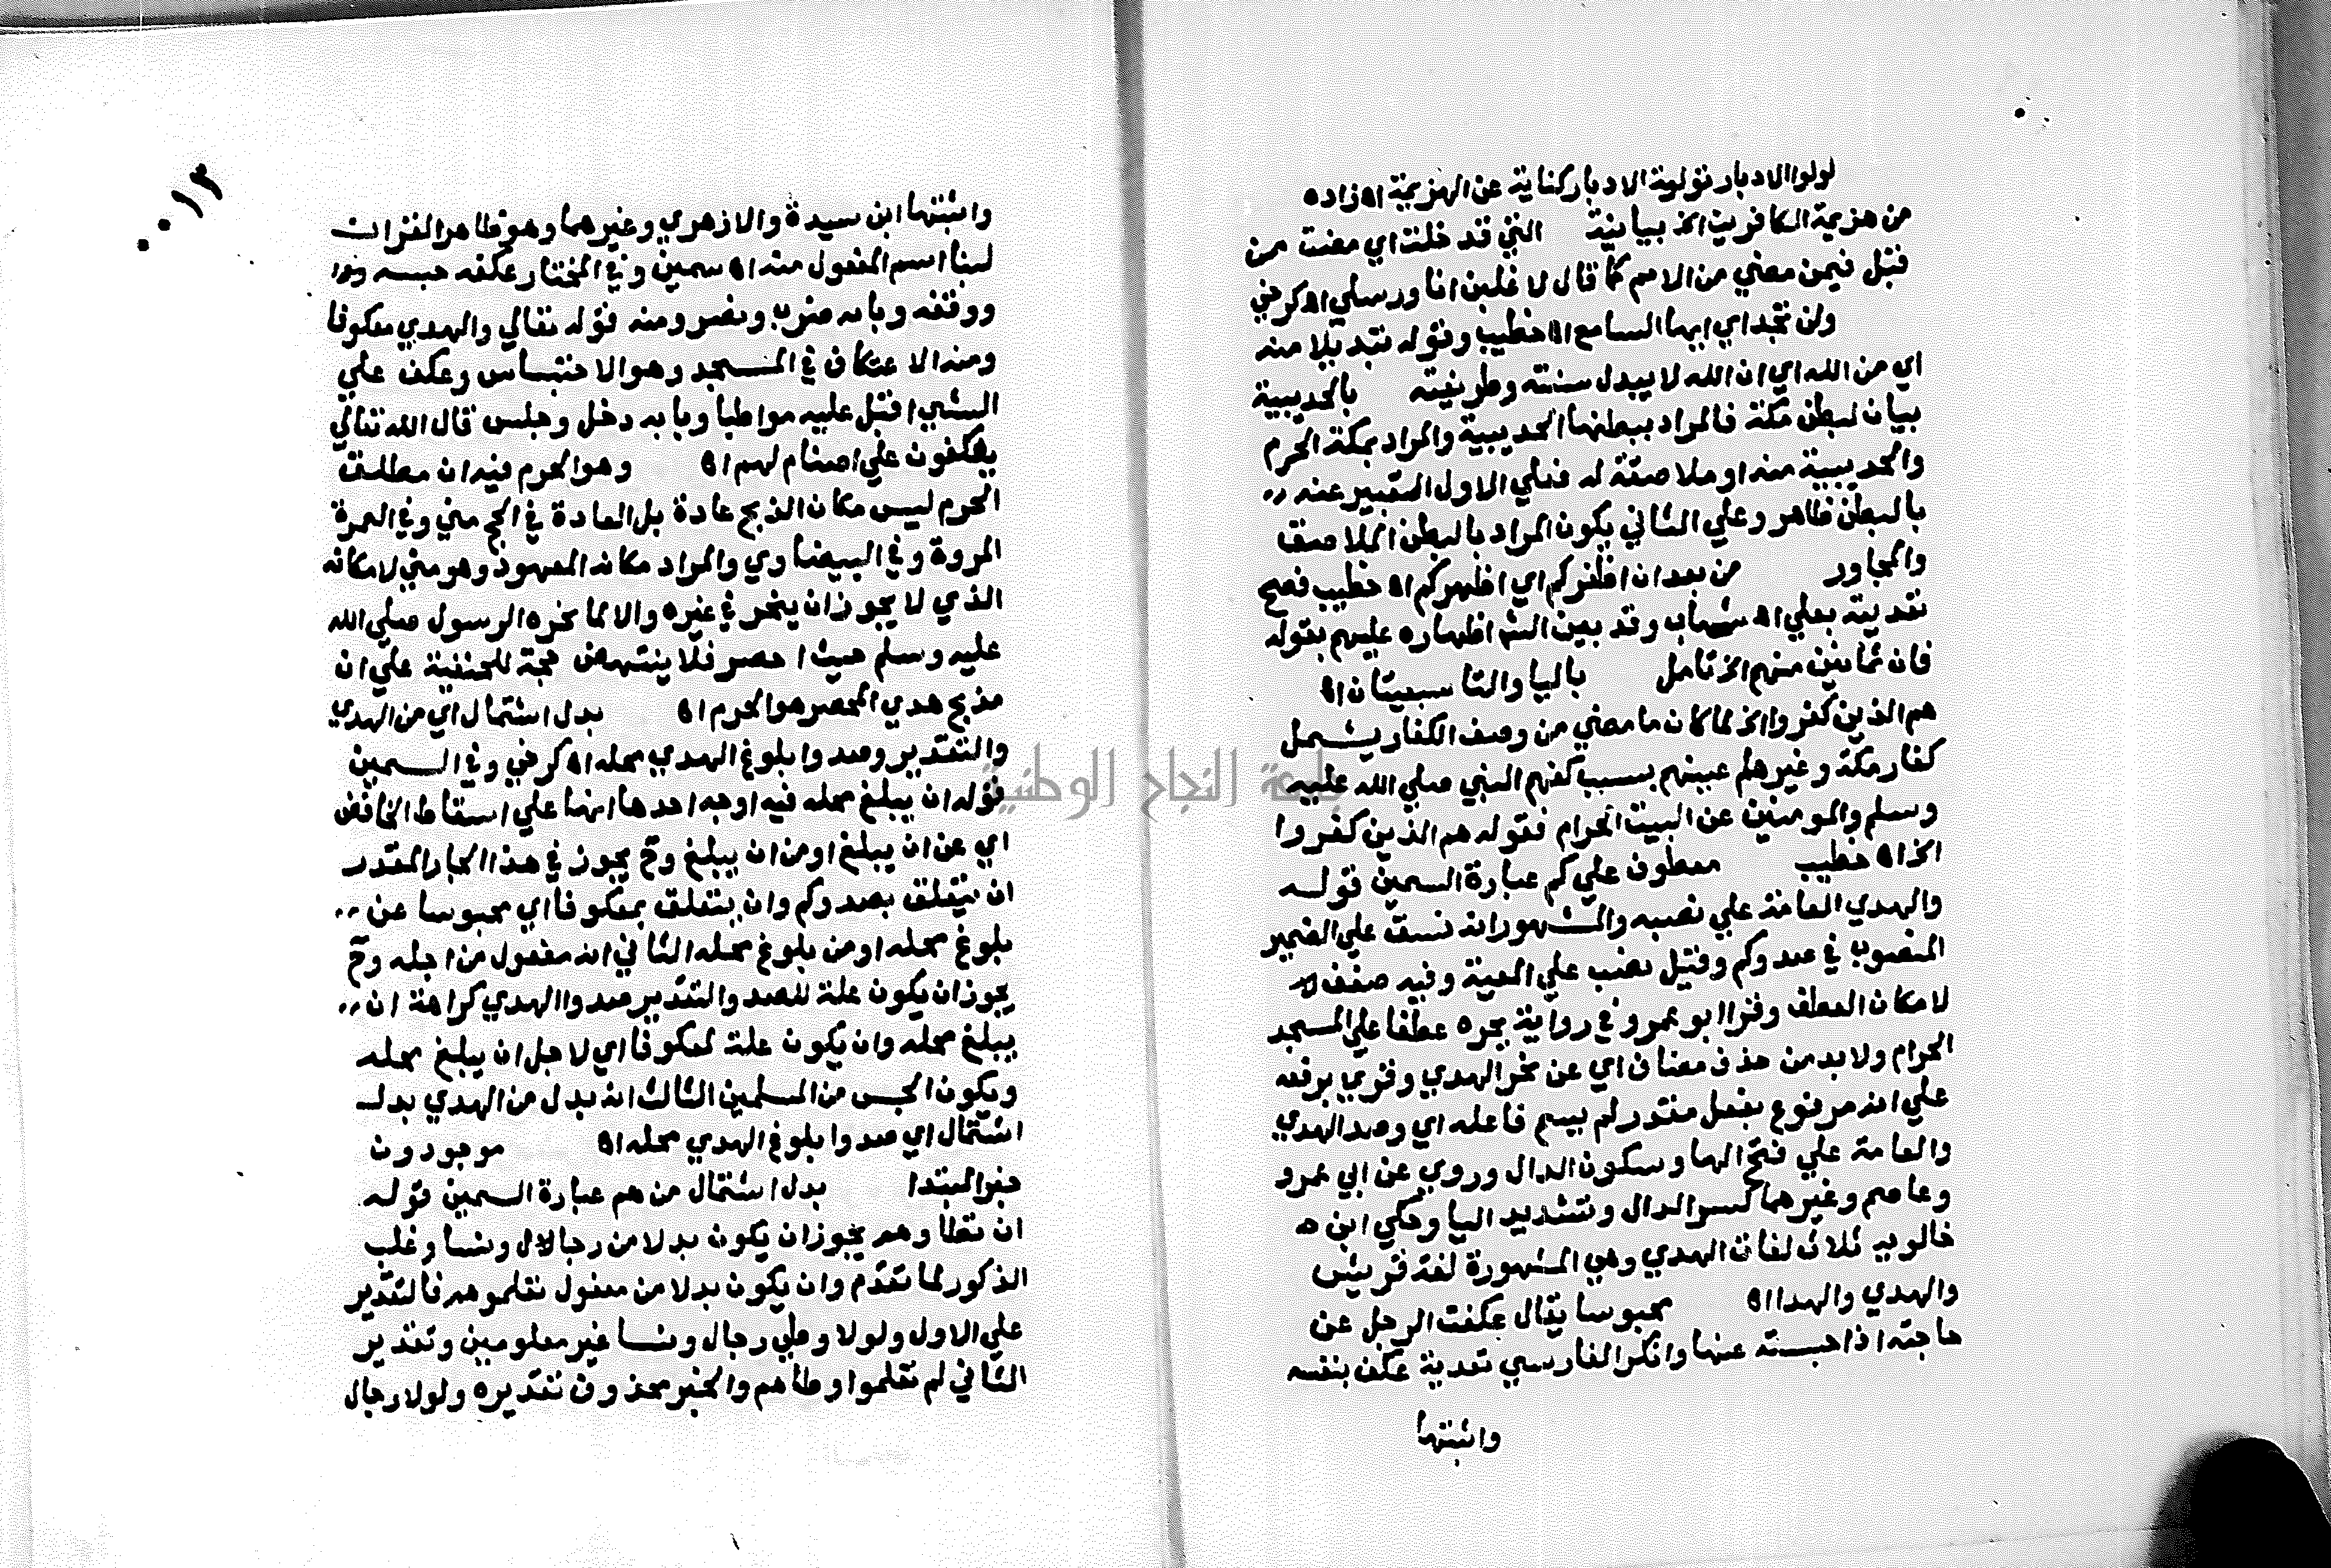 لولوا الادبار تولية الادبار كناية عن الهزيمة اه زاده
من هزيمة الكافرين الخ بيانية التي قد خلت اي مضت من
قبل فيمن مضي من الامم كما قال لاغلبن انا ورسلي اه كرخي
ولن تجد اي ايها السامع اه خطيب وقوله تبديلا منه
اي من الله اي ان الله لا يبدل سنته وطريقته بالحديبية
بيان لبطن مكة فالمراد ببطنها الحديبية والمراد بمكة الحرم
والحديبية منه او ملاصقة له فعلي الاول التعبير عنه
بالبطن ظاهر وعلي الثاني يكون المراد بالبطن الملاصق
والمجاور من بعد ان اظفركم اي اظهركم اه خطيب فصح
تعديته بعلي اه شهاب وقد بين الش اظهاره عليهم بقوله
فان ثمانين منهم الخ تامل باليا والتا سبعيتان اه
هم الذين كفروا الخ لما كان ما مضي من وصف الكفار يشمل
كفار مكة وغيرهم عينهم بسبب كفهم النبي صلي الله عليه
وسلم والمومنين عن البيت الحرام فقوله هم الذين كفروا
الخ اه خطيب معطوف علي كم عبارة السمين قوله
والهدي العامة علي نصبه والمشهور انه نسق علي الضمير
المنصوب في صدوكم وقيل نصب علي المعية وفيه ضعف
لامكان العطف وقرا ابو عمرو في رواية بجره عطفا علي المسجد
الحرام ولا بد من حذف مضاف اي عن نحر الهدي وقري برفعه
علي انه مرفوع بفعل مقدر لم يسم فاعله اي وصد الهدي
والعامة علي فتح الها وسكون الدال وروي عن ابي عمرو
وعاصم وغيرهما كسر الدال وتشديد اليا وحكي ابن
خالويه ثلاث لغات الهدي وهي المشهورة لغة قريش
والهدي والهدا اه محبوسا يقال عكفت الرجل عن
حاجته اذا حبسته عنها وانكر الفارسي تعدية عكف بنفسه
واثبتها
٠٠١٣
واثبتها ابن سيدة والازهري وغيرهما وهو ظاهر القران
لبنا اسم المفعول منه اه سمين وفي المختار عكفه حبسه
ووقفه وبابه ضرب ونصر ومنه قوله تعالي والهدي معكوفا
ومنه الاعتكاف في المسجد وهو الاحتباس وعكف علي
الشي اقبل عليه مواظبا وبابه دخل وجلس قال الله تعالي
يعكفون علي اصنام لهم اه وهو الحرم فيه ان مطلق
الحرم ليس مكان الذبح عادة بل العادة في الحج مني وفي العمرة
المروة وفي البيضاوي والمراد مكانه المعهود وهو مني لا مكانه
الذي لا يجوز ان ينحر في غيره والا لما نحره الرسول صلي الله
عليه وسلم حيث احصر فلا ينتهض حجة للحنفية علي ان
مذبح هدي المحصر هو الحرم اه بدل اشتمال اي من الهدي
والتقدير وصدوا بلوغ الهدي محله اه كرخي وفي السمين
قوله ان يبلغ محله فيه اوجه احدها انها علي اسقاط الخافض
اي عن ان يبلغ او من ان يبلغ وح يجوز في هذا الجار المقدر
ان يتعلق بصدوكم وان يتعلق بمعكوفا اي محبوسا عن
بلوغ محله او من بلوغ محله الثاني انه مفعول من اجله وح
يجوز ان يكون علة للصد والتقدير صدوا الهدي كراهة ان
يبلغ محله وان يكون علة لمعكوفا اي لاجل ان يبلغ محله
ويكون الحبس من المسلمين الثالث انه بدل من الهدي بدل
اشتمال اي صدوا بلوغ الهدي محله اه موجودون
خبر المبتدا بدل اشتمال من هم عبارة السمين قوله
ان تطاوهم يجوز ان يكون بدلا من رجال ونسا وغلب
الذكور لما تقدم وان يكون بدلا من مفعول تعلموهم فالتقدير
علي الاول ولولا وطي رجال ونسا غير معلومين وتقدير
الثاني لم تعلموا وطاهم والخبر محذوف تقديره ولولا رجال
جامعة النجاح الوطنية